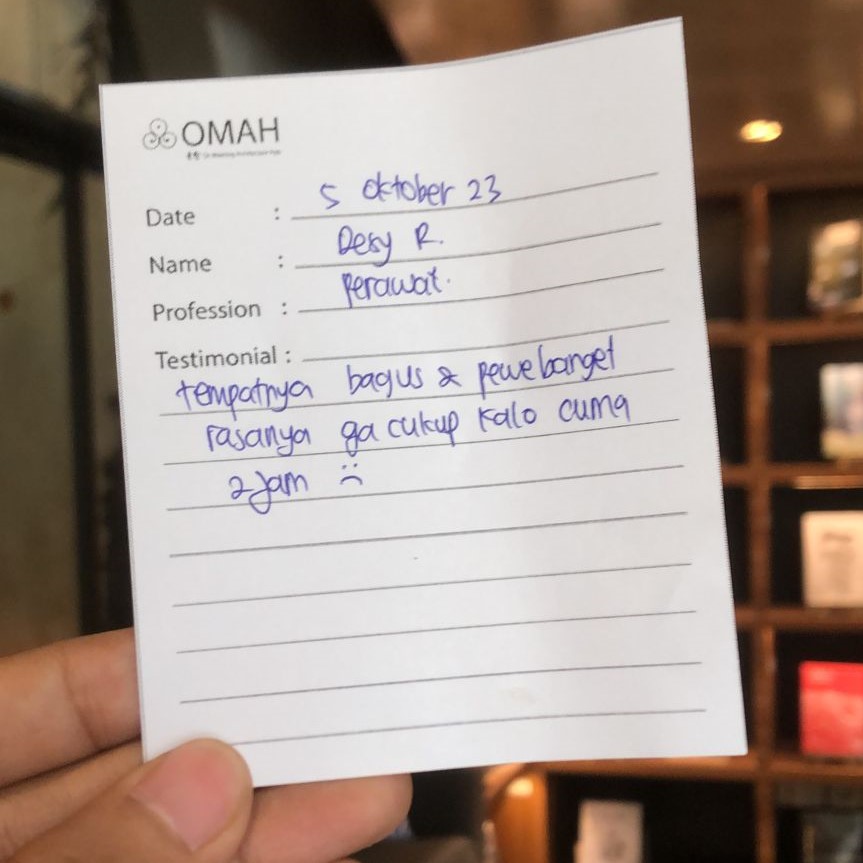 OMAH
Date : 5 Oktober 23
Name : Desy R.
Profession : Perawat.
Testimonial :
tempatnya bagus & pewe banget
rasanya ga cukup kalo cuma
2 jam :(